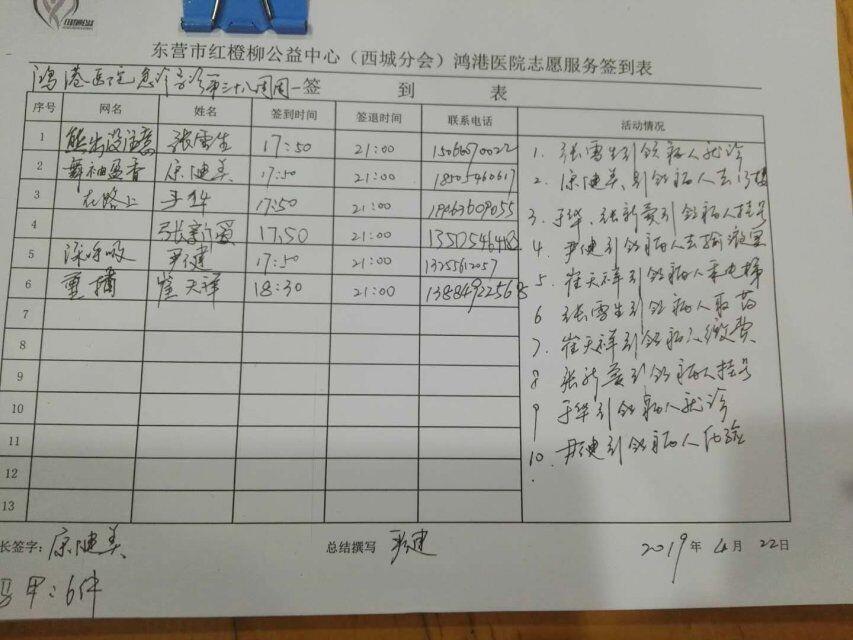 东营市红橙柳公益中心（西城分会）鸿港医院志愿服务签到表
鸿港医院急诊 第三十八周周一签 到 表
序号 网名 姓名 签到时间 签退时间 联系电话 活动情况
1 熊出没注意 张雷生 17:50 21:00
2 舞袖盈香 原建美 17:50 21:00 18505460617
3 在路上 于华 17:50 21:00
4 张新爱 17:50 21:00
5 深呼吸 尹健 17:50 21:00
6 重播 崔天祥 18:30 21:00 13884922568
7
8
9
10
11
12
13
1. 张雷生引领病人就诊
2. 原建美引领病人去
3. 于华、张新爱引领病人挂号
4. 尹健引领病人去输液室
5. 崔天祥引领病人乘电梯
6 张雷生引领病人取药
7. 崔天祥引领病人缴费
8 张新爱引领病人挂号
9 于华引领病人就诊
10. 尹健引领病人化验
长签字：原建美 总结撰写 2019年4月22日
马甲：6件